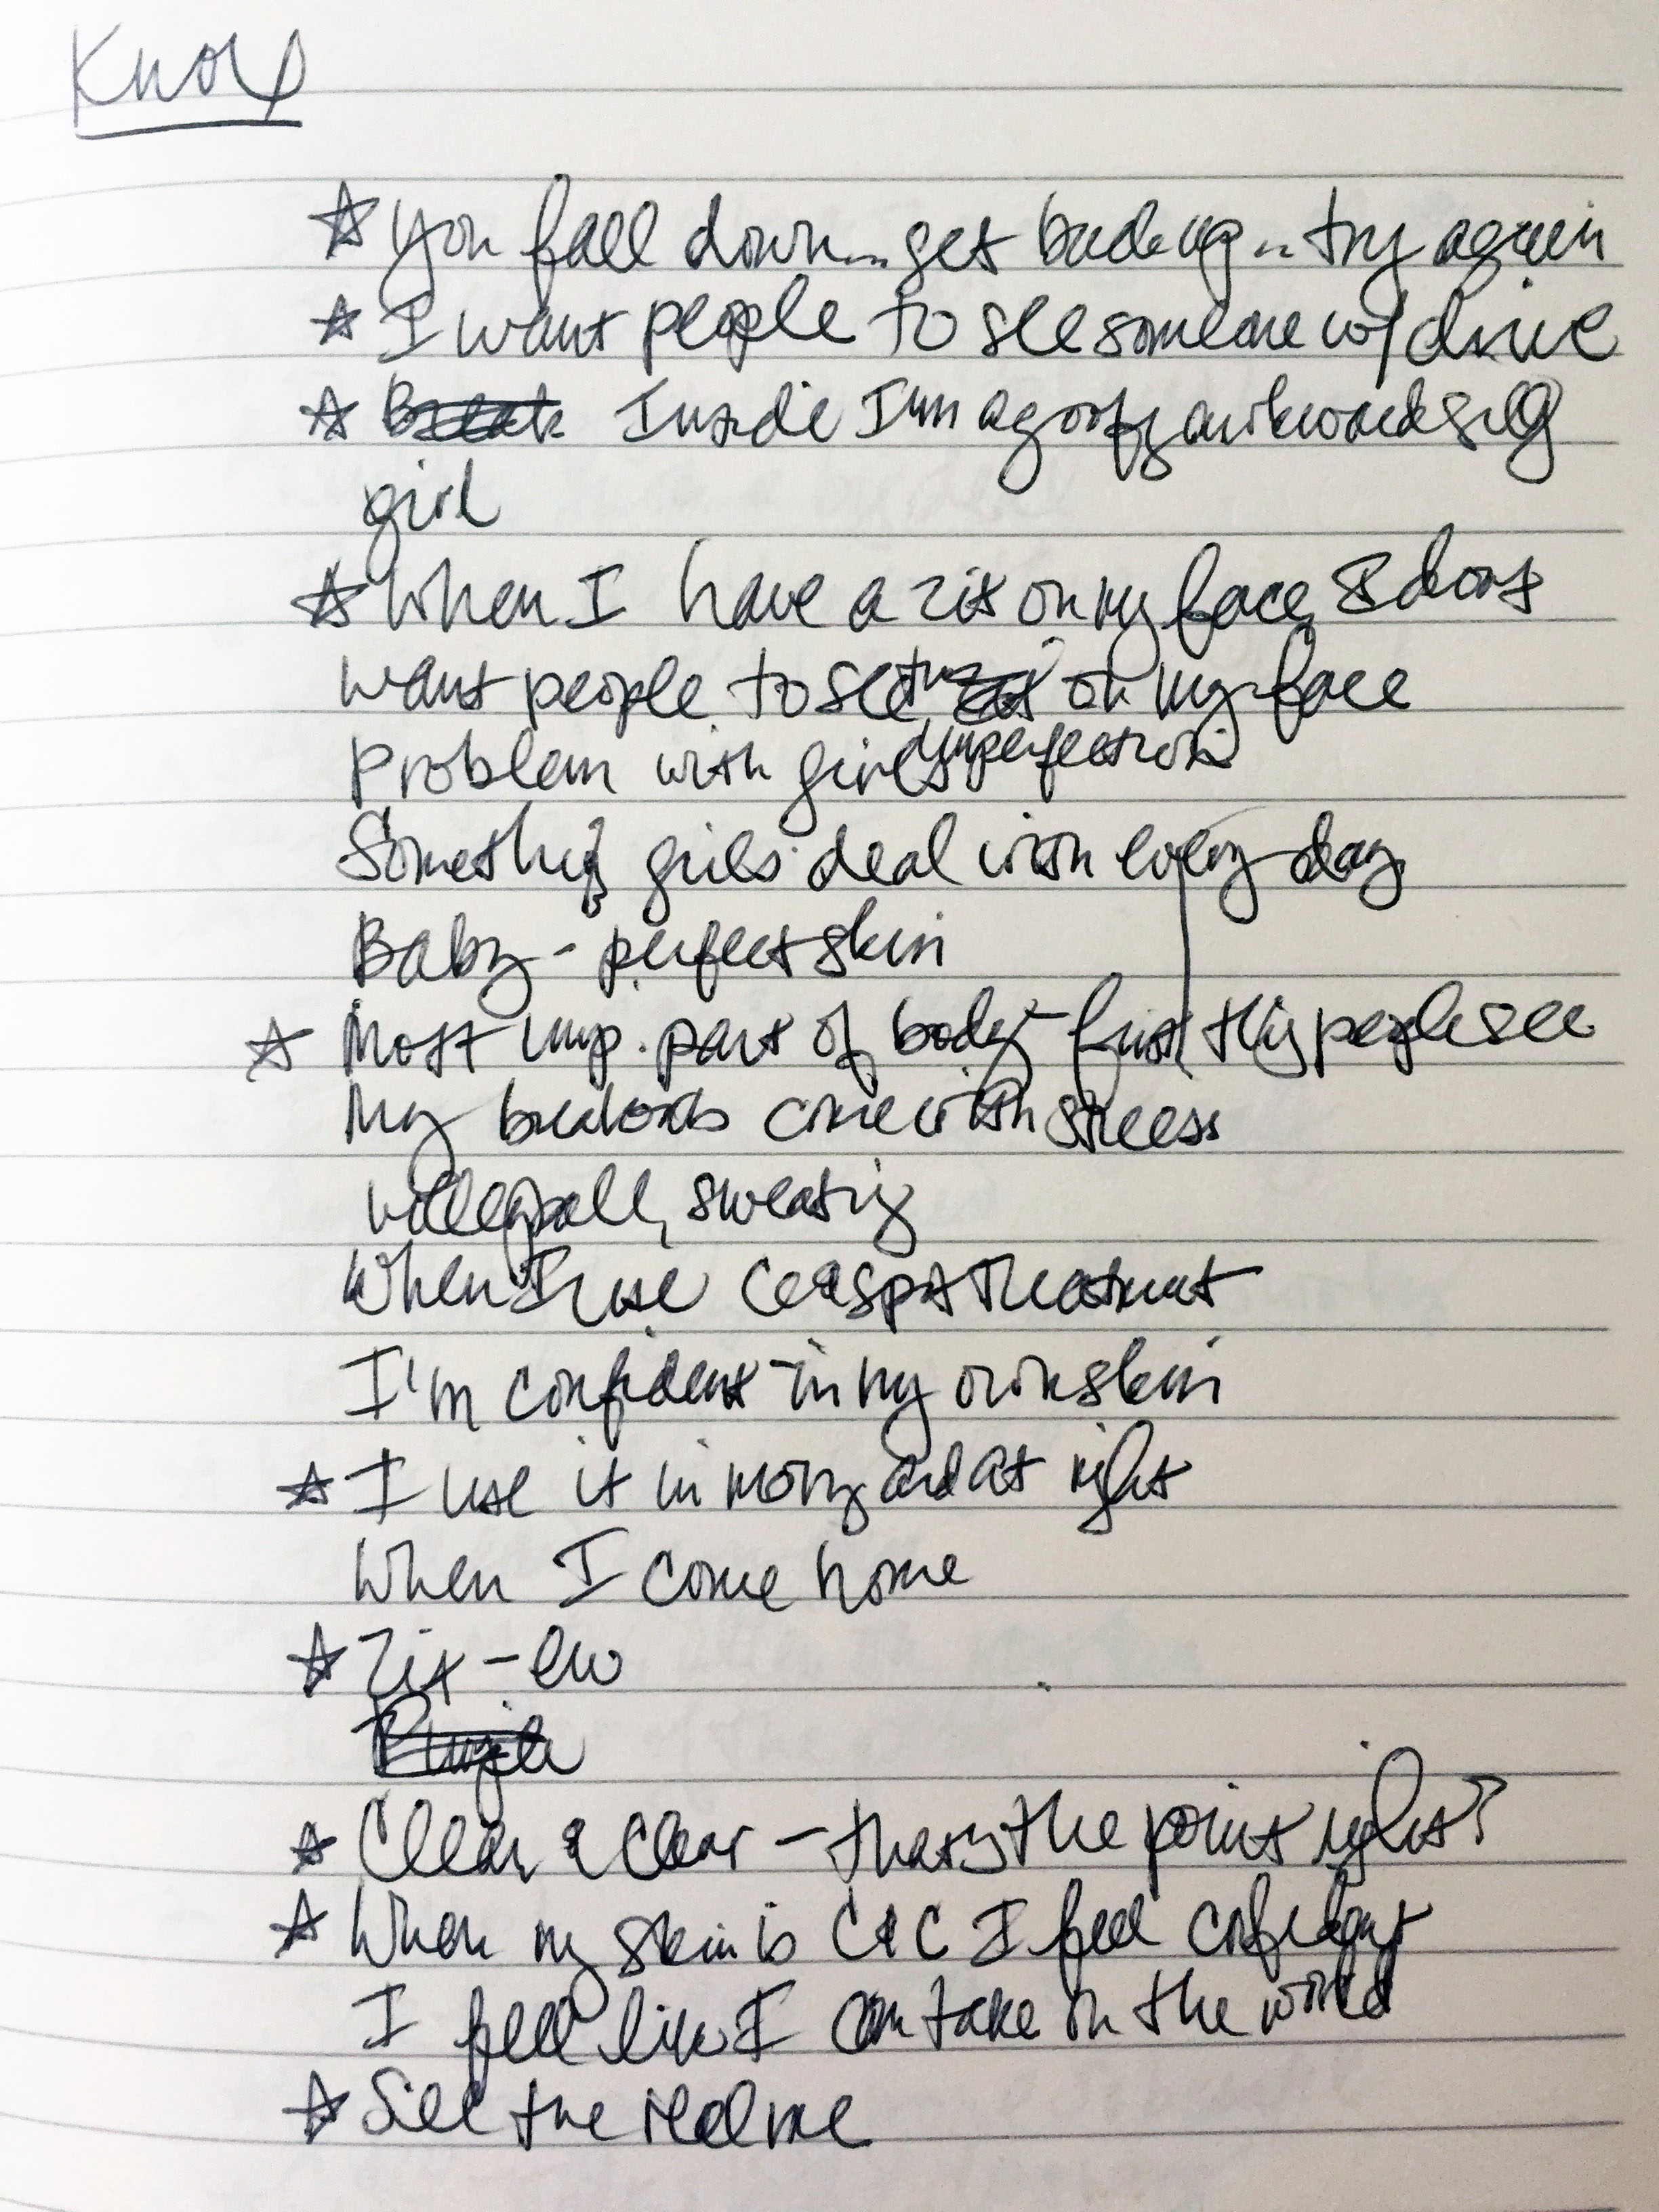 ☆ You fall down... get back up... try again
☆ I want people to see someone w/ drive
☆ Inside I'm a goofy awkward silly
girl
☆ When I have a zit on my face I don't
want people to see the on my face
Problem with girls imperfection
Something girls deal with every day
Baby - perfect skin
☆ Most imp. part of body - first thing people see
My breakouts come with stress
volleyball, sweating
When I use C&C spot treatment
I'm confident in my own skin
☆ I use it in morng and at night
When I come home
☆ Zit - ew
☆ Clean & Clear - that's the point right?
☆ When my skin is C&C I feel confident
I feel like I can take on the world
☆ See the real me